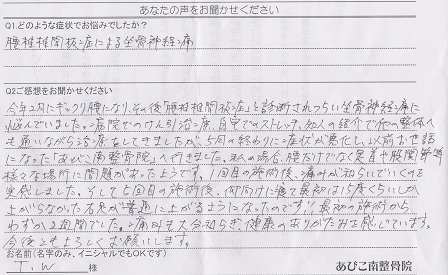 あなたの声をお聞かせください
Q1.どのような症状でお悩みでしたか?
腰椎椎間板症による坐骨神経痛
Q2ご感想をお聞かせください
今年2月にギックリ腰になり、その後「腰椎椎間板症」と診断されつらい坐骨神経痛に
悩んでいました。病院でのけん引治療、自宅でのストレッチ、知人の紹介で他の整体へ
も通いながら治療をしてきましたが、5月の終わりに症状が悪化し、以前お世話
になった「あびこ南整骨院」へ行きました。私の場合、腰だけでなく足首や股関節等
様々な場所に問題があったようです。1回目の施術後、痛みが和らいでいくのを
実感しました。そして5回目の施術後、仰向けに寝て最初は15度くらいしか
上がらなかった右足が普通に上がるようになったのです!! 最初の施術から
わずか2週間でした。痛みも大分和らぎ、健康のありがたみを感じています。
今後ともよろしくお願いします。
お名前(名字のみ、イニシャルでもOKです)
T.W 様
あびこ南整骨院